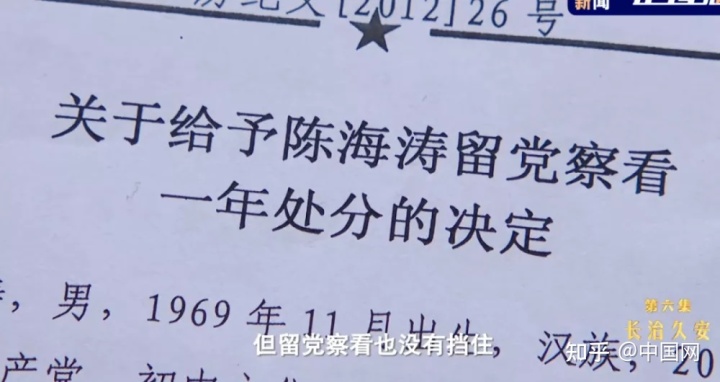 新闻
[2012]26号
关于给予陈海涛留党察看
一年处分的决定
，男，1969年11月出生，汉族，20
产党
但留党察看也没有挡住
第六集
长治久安
知乎 @中国网